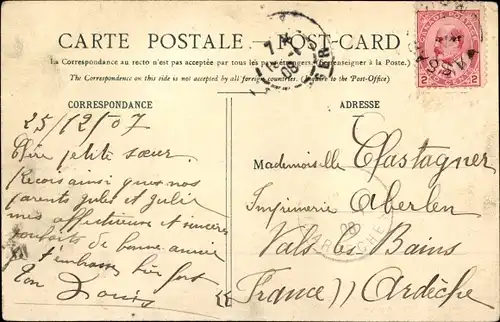 CARTE POSTALE — POST-CARD
La Correspondance au recto n'est pas acceptée par tous les pays étrangers (Se renseigner à la Poste).
The Correspondence on this side is not accepted by all foreign countries. (Inquire to the Post-Office)
CORRESPONDANCE
ADRESSE
25/12/07
petite sœur
Reçois ainsi que nos
parents Jules et Julie
mes affectueux et sincères
souhaits de bonne année
t'embrasse bien fort
Ton Louis
Mademoiselle Clastagner
Imprimerie Aberlen
Vals les Bains
France)) Ardèche
2
2
7
08
08
ARDECHE